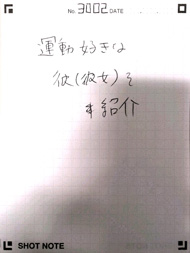 No. 3002 DATE
運動好きな
彼(彼女)を
紹介
SHOT NOTE